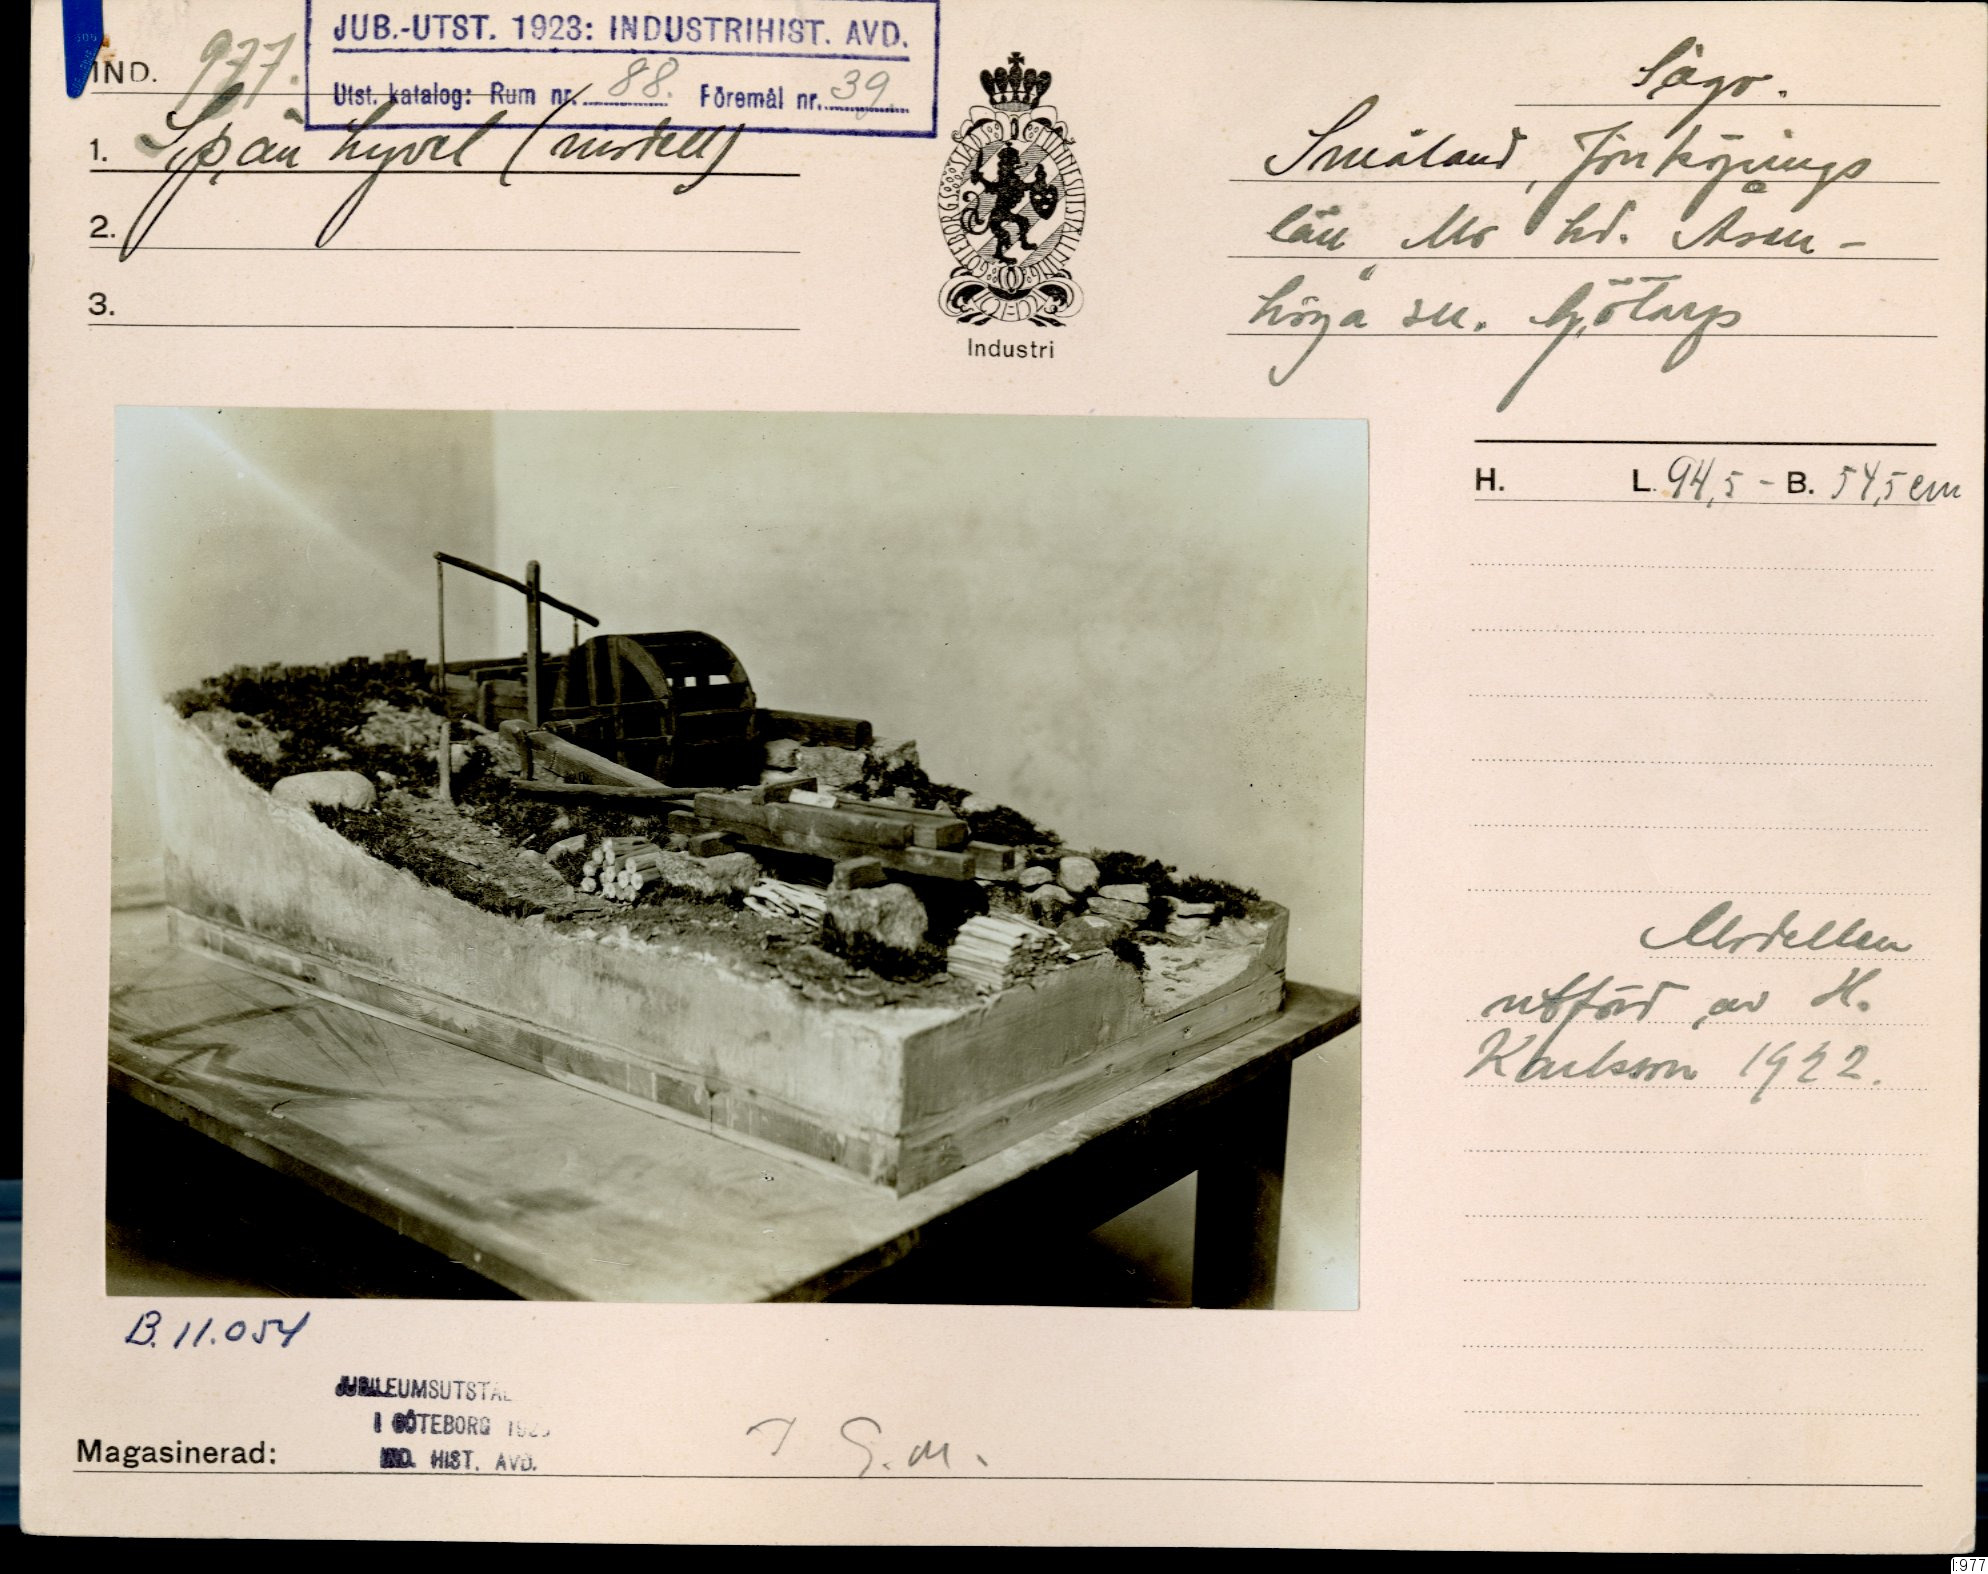 IND. 977.
JUB.-UTST. 1923: INDUSTRIHIST. AVD.
Utst. katalog: Rum nr. 88. Föremål nr. 39.
1. Spån hyvel (modell)
2.
3.
GÖTEBORGS STADS MINNESUTSTÄLLNING
Industri
Ägo.
Småland, Jönköpings
län Mo hd. Åsen-
höga sn. Götarp
H. L. 94,5 - B. 54,5 cm
Modellen
utförd av H.
Karlsson 1922.
B. 11.054
JUBILEUMSUTSTÄL
I GÖTEBORG 1923
IND. HIST. AVD.
Magasinerad: G.M.
I:977